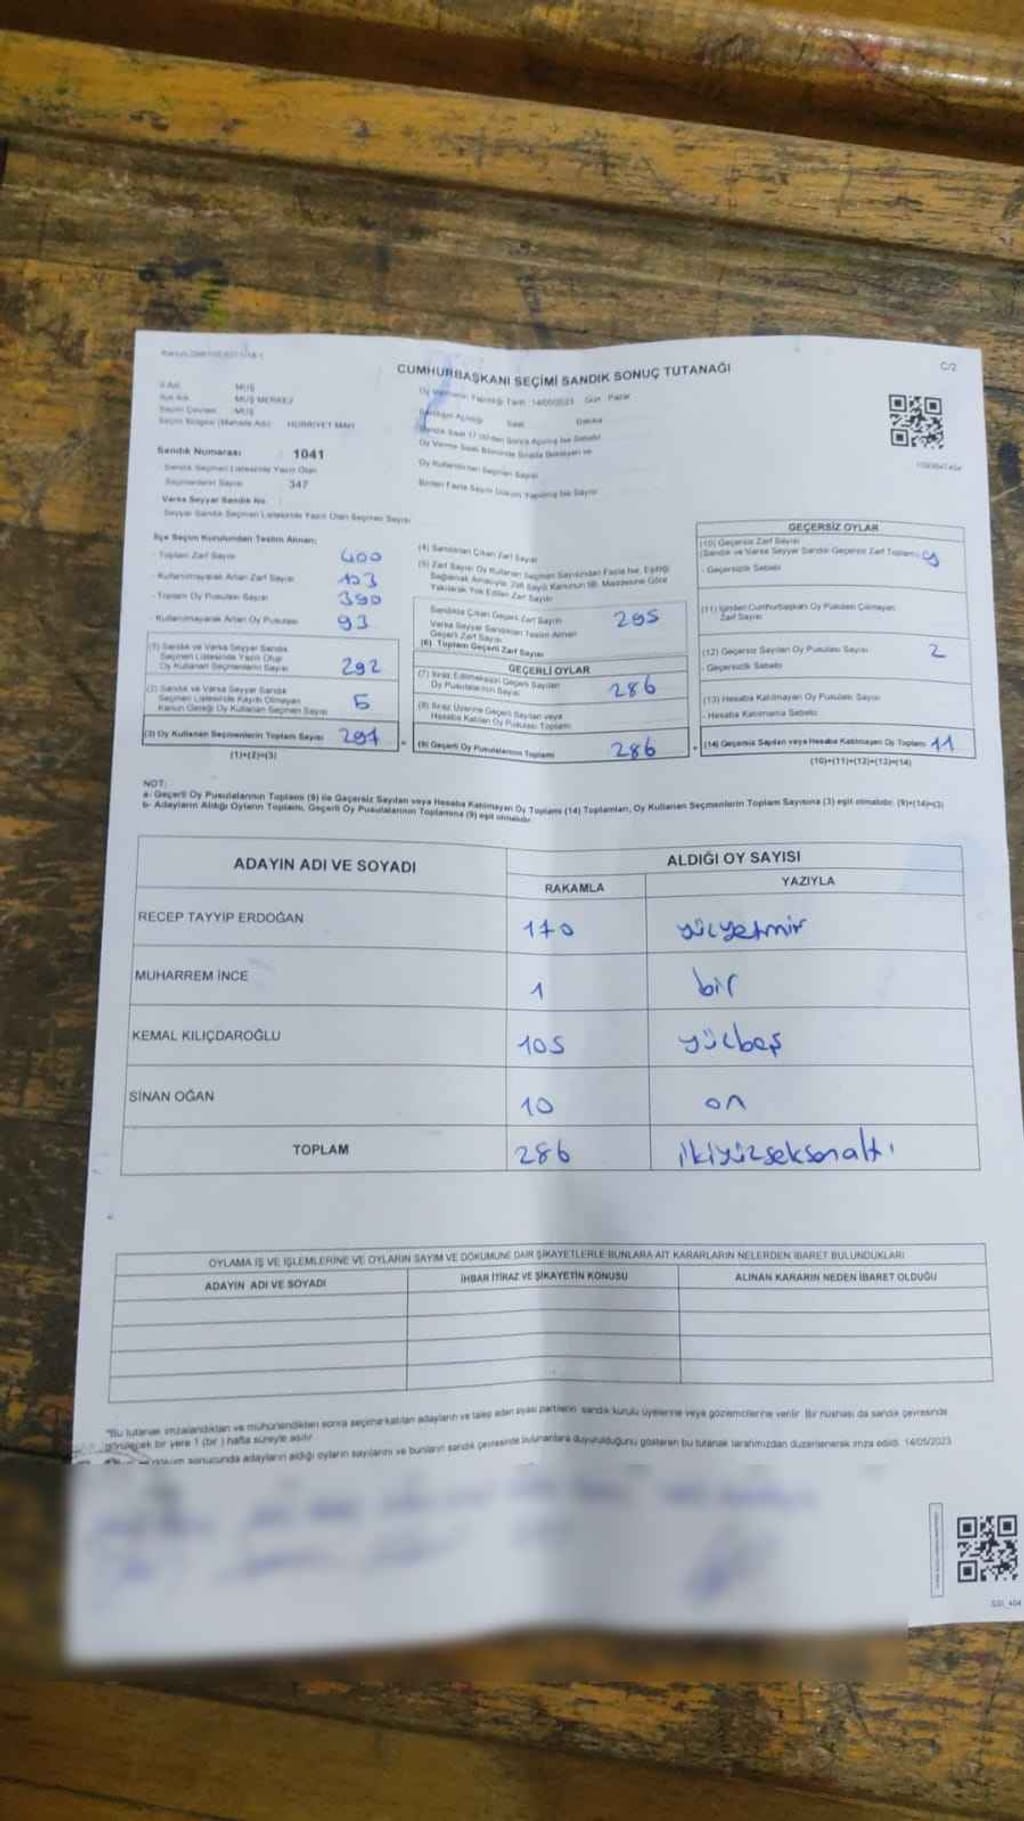 CUMHURBAŞKANI SEÇİMİ SANDIK SONUÇ TUTANAĞI
C/2
İl Adı MUŞ
İlçe Adı MUŞ MERKEZ
Seçim Çevresi MUŞ
Seçim Bölgesi (Mahalle Adı) HÜRRİYET MAH
Oy Vermenin Yapıldığı Tarih 14/05/2023 Gün Pazar
Saat Dakika
Sandık Numarası 1041
Sandık Seçmen Listesinde Yazılı Olan
Seçmenlerin Sayısı 347
Varsa Seyyar Sandık No
Seyyar Sandık Seçmen Listesinde Yazılı Olan Seçmen Sayısı
Oy Kullandırılan Seçmen Sayısı
Birden Fazla Sayım Döküm Yapılmış İse Sayısı
İlçe Seçim Kurulundan Teslim Alınan;
- Toplam Zarf Sayısı 400
- Kullanılmayarak Artan Zarf Sayısı 103
- Toplam Oy Pusulası Sayısı 390
- Kullanılmayarak Artan Oy Pusulası 93
(1) Sandık ve Varsa Seyyar Sandık
Seçmen Listesinde Yazılı Olup
Oy Kullanan Seçmenlerin Sayısı 292
(2) Sandık ve Varsa Seyyar Sandık
Seçmen Listesinde Kayıtlı Olmayan
Kanun Gereği Oy Kullanan Seçmen Sayısı 5
(3) Oy Kullanan Seçmenlerin Toplam Sayısı 297
(1)+(2)=(3)
(4) Sandıktan Çıkan Zarf Sayısı
(5) Zarf Sayısı Oy Kullanan Seçmen Sayısından Fazla İse, Eşitliği
Sağlamak Amacıyla, 298 Sayılı Kanunun 98. Maddesine Göre
Yakılarak Yok Edilen Zarf Sayısı
Sandıkta Çıkan Geçerli Zarf Sayısı 295
Varsa Seyyar Sandıktan Teslim Alınan
Geçerli Zarf Sayısı
(6) Toplam Geçerli Zarf Sayısı
GEÇERLİ OYLAR
(7) İtiraz Edilmeksizin Geçerli Sayılan
Oy Pusulalarının Sayısı 286
(8) İtiraz Üzerine Geçerli Sayılan veya
Hesaba Katılan Oy Pusulası Toplamı
(9) Geçerli Oy Pusulalarının Toplamı 286
GEÇERSİZ OYLAR
(10) Geçersiz Zarf Sayısı
(Sandık ve Varsa Seyyar Sandık Geçersiz Zarf Toplamı) 9
- Geçersizlik Sebebi
(11) İçinden Cumhurbaşkanı Oy Pusulası Çıkmayan
Zarf Sayısı
(12) Geçersiz Sayılan Oy Pusulası Sayısı 2
- Geçersizlik Sebebi
(13) Hesaba Katılmayan Oy Pusulası Sayısı
- Hesaba Katılmama Sebebi
(14) Geçersiz Sayılan veya Hesaba Katılmayan Oy Toplamı 11
(10)+(11)+(12)+(13)=(14)
NOT:
a- Geçerli Oy Pusulalarının Toplamı (9) ile Geçersiz Sayılan veya Hesaba Katılmayan Oy Toplamı (14) Toplamları, Oy Kullanan Seçmenlerin Toplam Sayısına (3) eşit olmalıdır. (9)+(14)=(3)
b- Adayların Aldığı Oyların Toplamı, Geçerli Oy Pusulalarının Toplamına (9) eşit olmalıdır.
ADAYIN ADI VE SOYADI ALDIĞI OY SAYISI
RAKAMLA YAZIYLA
RECEP TAYYİP ERDOĞAN 170 yüzyetmiş
MUHARREM İNCE 1 bir
KEMAL KILIÇDAROĞLU 105 yüzbeş
SİNAN OĞAN 10 on
TOPLAM 286 ikiyüzseksenaltı
OYLAMA İŞ VE İŞLEMLERİNE VE OYLARIN SAYIM VE DÖKÜMÜNE DAİR ŞİKAYETLERLE BUNLARA AİT KARARLARIN NELERDEN İBARET BULUNDUKLARI
ADAYIN ADI VE SOYADI İHBAR İTİRAZ VE ŞİKAYETİN KONUSU ALINAN KARARIN NEDEN İBARET OLDUĞU
"Bu tutanak imzalandıktan ve mühürlendikten sonra seçime katılan adayların ve talep eden siyasi partilerin sandık kurulu üyelerine veya gözlemcilerine verilir. Bir nüshası da sandık çevresinde
görülecek bir yere 1 (bir) hafta süreyle asılır.
sonucunda adayların aldığı oyların sayılarını ve bunların sandık çevresinde bulunanlara duyurulduğunu gösteren bu tutanak tarafımızdan düzenlenerek imza edildi. 14/05/2023